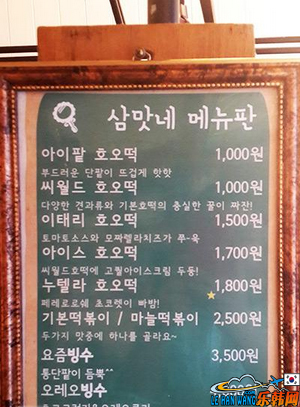 삼맛네 메뉴판
아이팥 호오떡 1,000원
부드러운 단팥이 뜨겁게 핫핫
씨월드 호오떡 1,000원
다양한 견과류와 기본호떡의 충실한 꿀이 짜진!
이태리 호오떡 1,500원
토마토소스와 모짜렐라치즈가 푸-욱
아이스 호오떡 1,700원
씨월드호오떡에 고퀄아이스크림 두둥!
누텔라 호오떡 1,800원
페레로로쉐 초코렛이 빠방!
기본떡볶이 / 마늘떡볶이 2,500원
두가지 맛중에 하나를 골라요~
요즘빙수 3,500원
통단팥이 듬뿍^^
오레오빙수
LE HAN WANG 乐韩网